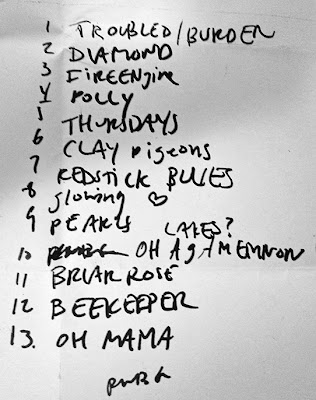 1 TROUBLED/BURDEN
2 DIAMOND
3 FIREENgine
4 POLLY
5 THURSDAYS
6 CLAY Pigeons
7 REDSTICK BLUES
8 glowing ♡
9 PEARLS LATES?
10 OH AgAMEMNON
11 BRIAR ROSE
12 BEEKEEPER
13. OH MAMA